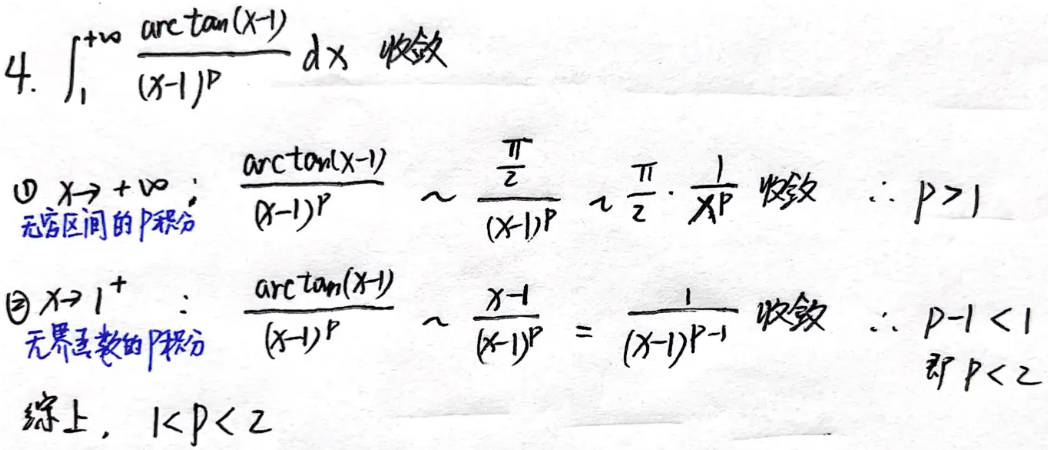 4. ∫₁^{+∞} arctan(x-1)/(x-1)^p dx 收敛
① x→+∞ : arctan(x-1)/(x-1)^p ~ (π/2)/(x-1)^p ~ π/2 · 1/x^p 收敛 ∴ p>1
无穷区间的p积分
② x→1⁺ : arctan(x-1)/(x-1)^p ~ (x-1)/(x-1)^p = 1/(x-1)^{p-1} 收敛 ∴ p-1<1
无界函数的p积分
即 p<2
综上, 1<p<2